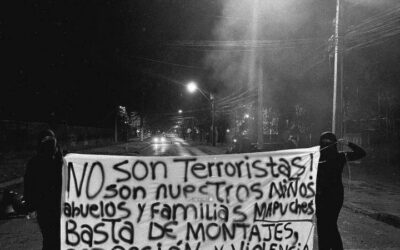 NO son Terroristas!
son nuestros niños
abuelos y familias MAPUCHES
BASTA DE MONTAJES,
y violencia